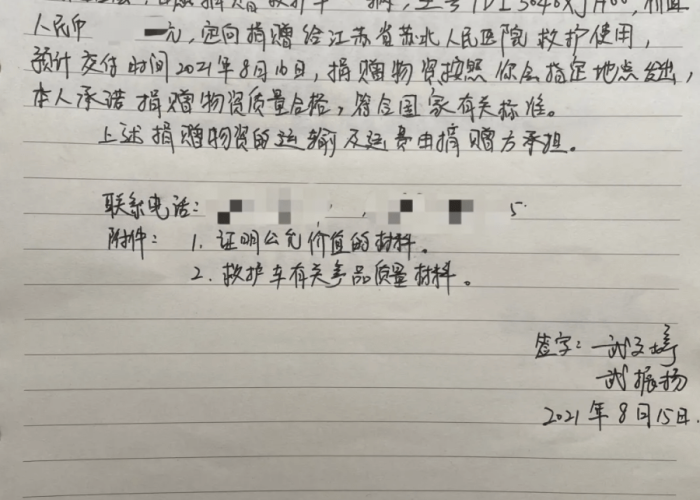 捐赠救护车一辆,型号JDI5040XJH00,价值
人民币 元,定向捐赠给江苏省苏北人民医院救护使用,
预计交付时间2021年8月16日,捐赠物资按照你会指定地点发出,
本人承诺捐赠物资质量合格,符合国家有关标准。
上述捐赠物资的运输及运费由捐赠方承担。
联系电话: 5
附件: 1. 证明公允价值的材料。
2. 救护车有关产品质量材料。
签字: 武文
武振扬
2021年8月15日.